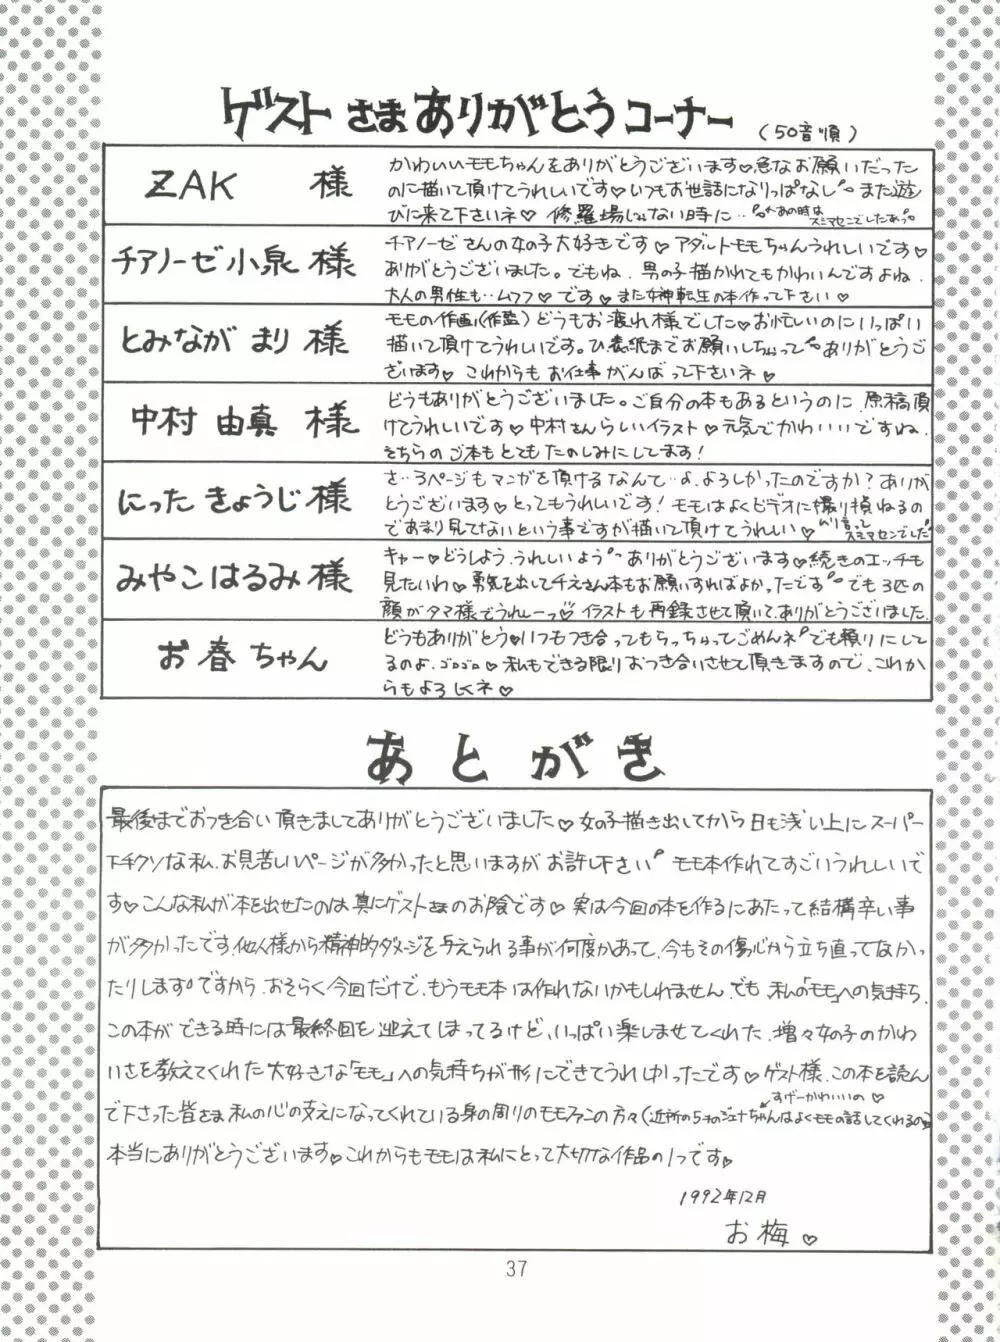 ゲストさまありがとうコーナー (50音順)
ZAK 様
かわいいモモちゃんをありがとうございます♡急なお願いだった
のに描いて頂けてうれしいです♡いつもお世話になりっぱなし また遊
びに来て下さいネ♡ 修羅場じゃない時に…
あの時は
スミマセンでしたあっ
チアノーゼ小泉 様
チアノーゼさんの女の子大好きです♡アダルトモモちゃんうれしいです♡
ありがとうございました。でもね、男の子描かれてもかわいんですよね、
大人の男性も…ムフフ♡です♡また女神転生の本作って下さい♡
とみなが まり 様
モモの作画(作監)どうもお疲れ様でした♡お忙しいのにいっぱい
描いて頂けてうれしいです。ひ表紙までお願いしちゃって ありがとうご
ざいます♡ これからも お仕事がんばって下さいネ♡
中村 由真 様
どうもありがとうございました。ご自分の本もあるというのに、原稿頂
けてうれしいです♡中村さんらしいイラスト♡元気でかわいいですね、
そちらのご本もとてもたのしみにしてます!
にった きょうじ 様
さ…3ページもマンガを頂けるなんて…よ、よろしかったのですか?ありが
とうございます♡とってもうれしいです! モモはよくビデオに撮り損ねるの
であまり見てないという事ですが描いて頂けてうれしい♡
ムリ言って
スミマセンでした
みやこはるみ 様
キャー♡どうしよう、うれしいよう ありがとうございます♡続きのエッチも
見たいわ♡勇気を出してチえさん本もお願いすればよかったです でも3匹の
顔がタマ様でうれーっ♡イラストも再録させて頂いて、ありがとうございました。
お春ちゃん
どうもありがとう♡いつもつき合ってもらっちゃってごめんネ でも頼りにして
るのよ、ゴロゴロ♡私もできる限りおつき合いさせて頂きますので、これか
らもよろしくネ♡
あとがき
最後までおつき合い頂きましてありがとうございました♡女の子描き出してから日も浅い上にスーパー
下手クソな私、お見苦しいページが多かったと思いますが お許し下さい モモ本作れてすごいうれしいで
す♡こんな私が本を出せたのは真にゲストさまのお陰です♡実は今回の本を作るにあたって結構辛い事
が多かったです。他人様から精神的ダメージを与えられる事が何度かあって、今もその傷心から立ち直ってなかっ
たりします ですから、おそらく今回だけで、もうモモ本は作れないかもしれません。でも、私の「モモ」への気持ち、
この本ができる時には最終回を迎えてしまってるけど、いっぱい楽しませてくれた、増々女の子のかわ
いさを教えてくれた大好きな「モモ」への気持ちが形にできてうれしかったです♡ゲスト様、この本を読ん
すげーかわいいの♡
で下さった皆さま、私の心の支えになってくれている身の周りのモモファンの方々(近所の5才のジュナちゃんはよくモモの話してくれるの)
本当にありがとうございます♡これからもモモは私にとって大切な作品の1つです♡
1992年12月
お梅♡
37